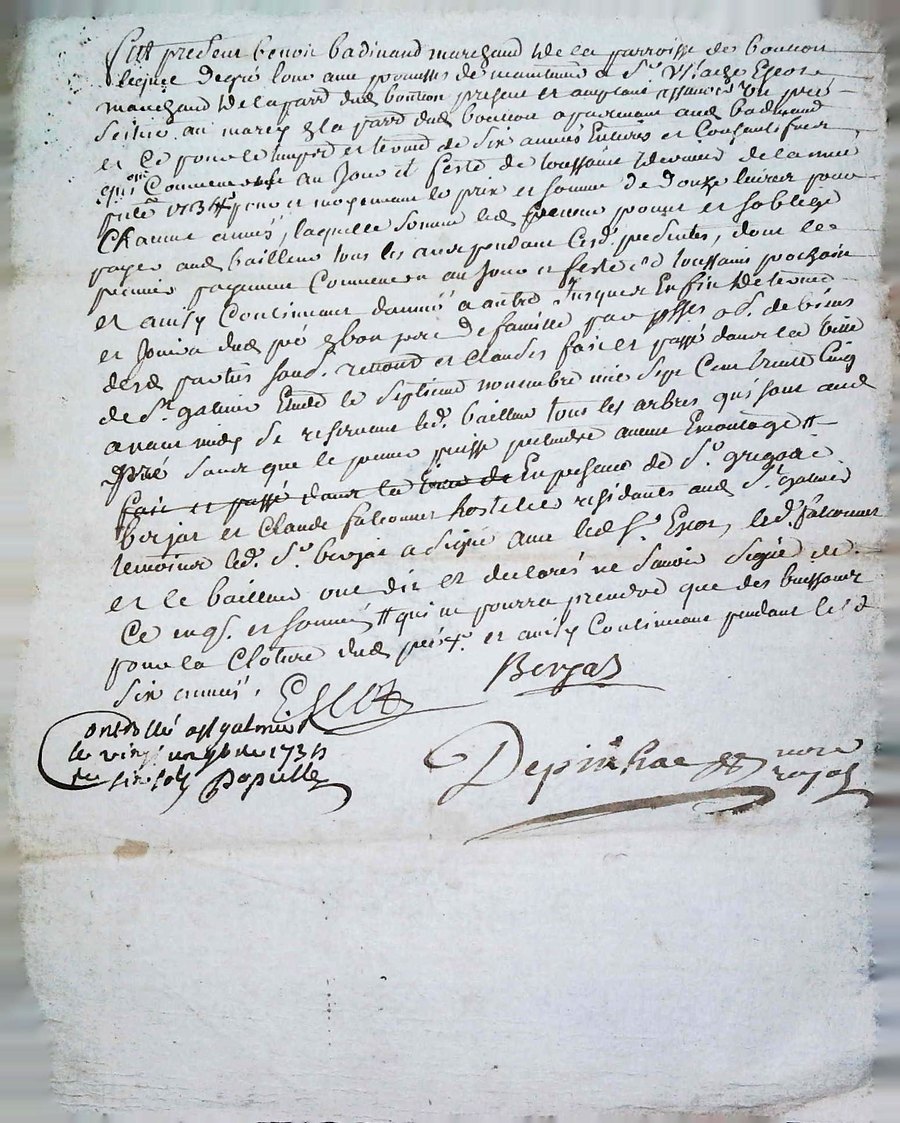 Fut present benoit badinand marchand de la parroisse de bouteon
lequel de gré loue avec promesses de maintenue a Sr Escot
marchand de la parr dud bouteon present et acceptant un pré
scitué au marey & la parr dud bouteon apartenant aud badinand
et ce pour le temps et terme de six années Entieres et Consecutives
qui ont Commencé au Jour et feste de toussaint dernier
1735 et moyenant le prix et somme de douze livres pour
Chacune année, laquelle somme led preneur promet et soblige
payer aud bailleur tous les ans pendant lesd. presentes, dont le
premier payement Commencera au Jour et feste de toussains prochain
et ainsy Continuant dannée a autre Jusques Enfin de terme
et Jouira dud pré en bon pere de famille par psses obs. de biens
desd parties soub. renond et Clauses fait et passé dans la ville
de St galmier Etude le septieme novembre mil sept Cent trente Cinq
avant midy se reservant led. bailleur tous les arbres qui sont aud
pré sans que le preneur puisse pretendre aucun Emondage #
fait et passé dans la En presence de Sr grégoire
berjat et Claude falconnet hostelier residants aud St galmier
temoins led. Sr berjat a signé avec led Sr Escot, led. falconnet
et le bailleur ont dit et declarés ne savoir signé de
ce enqs. et sommés # qui ne pourra prendre que des buissons
pour la Cloture dud pré et ainsy Continuant pendant lesd
six années.
Escot
Berjat
Controllé a St galmier
le vingt un 9bre 1735
six sols Populle
Depinhac
nore
royal